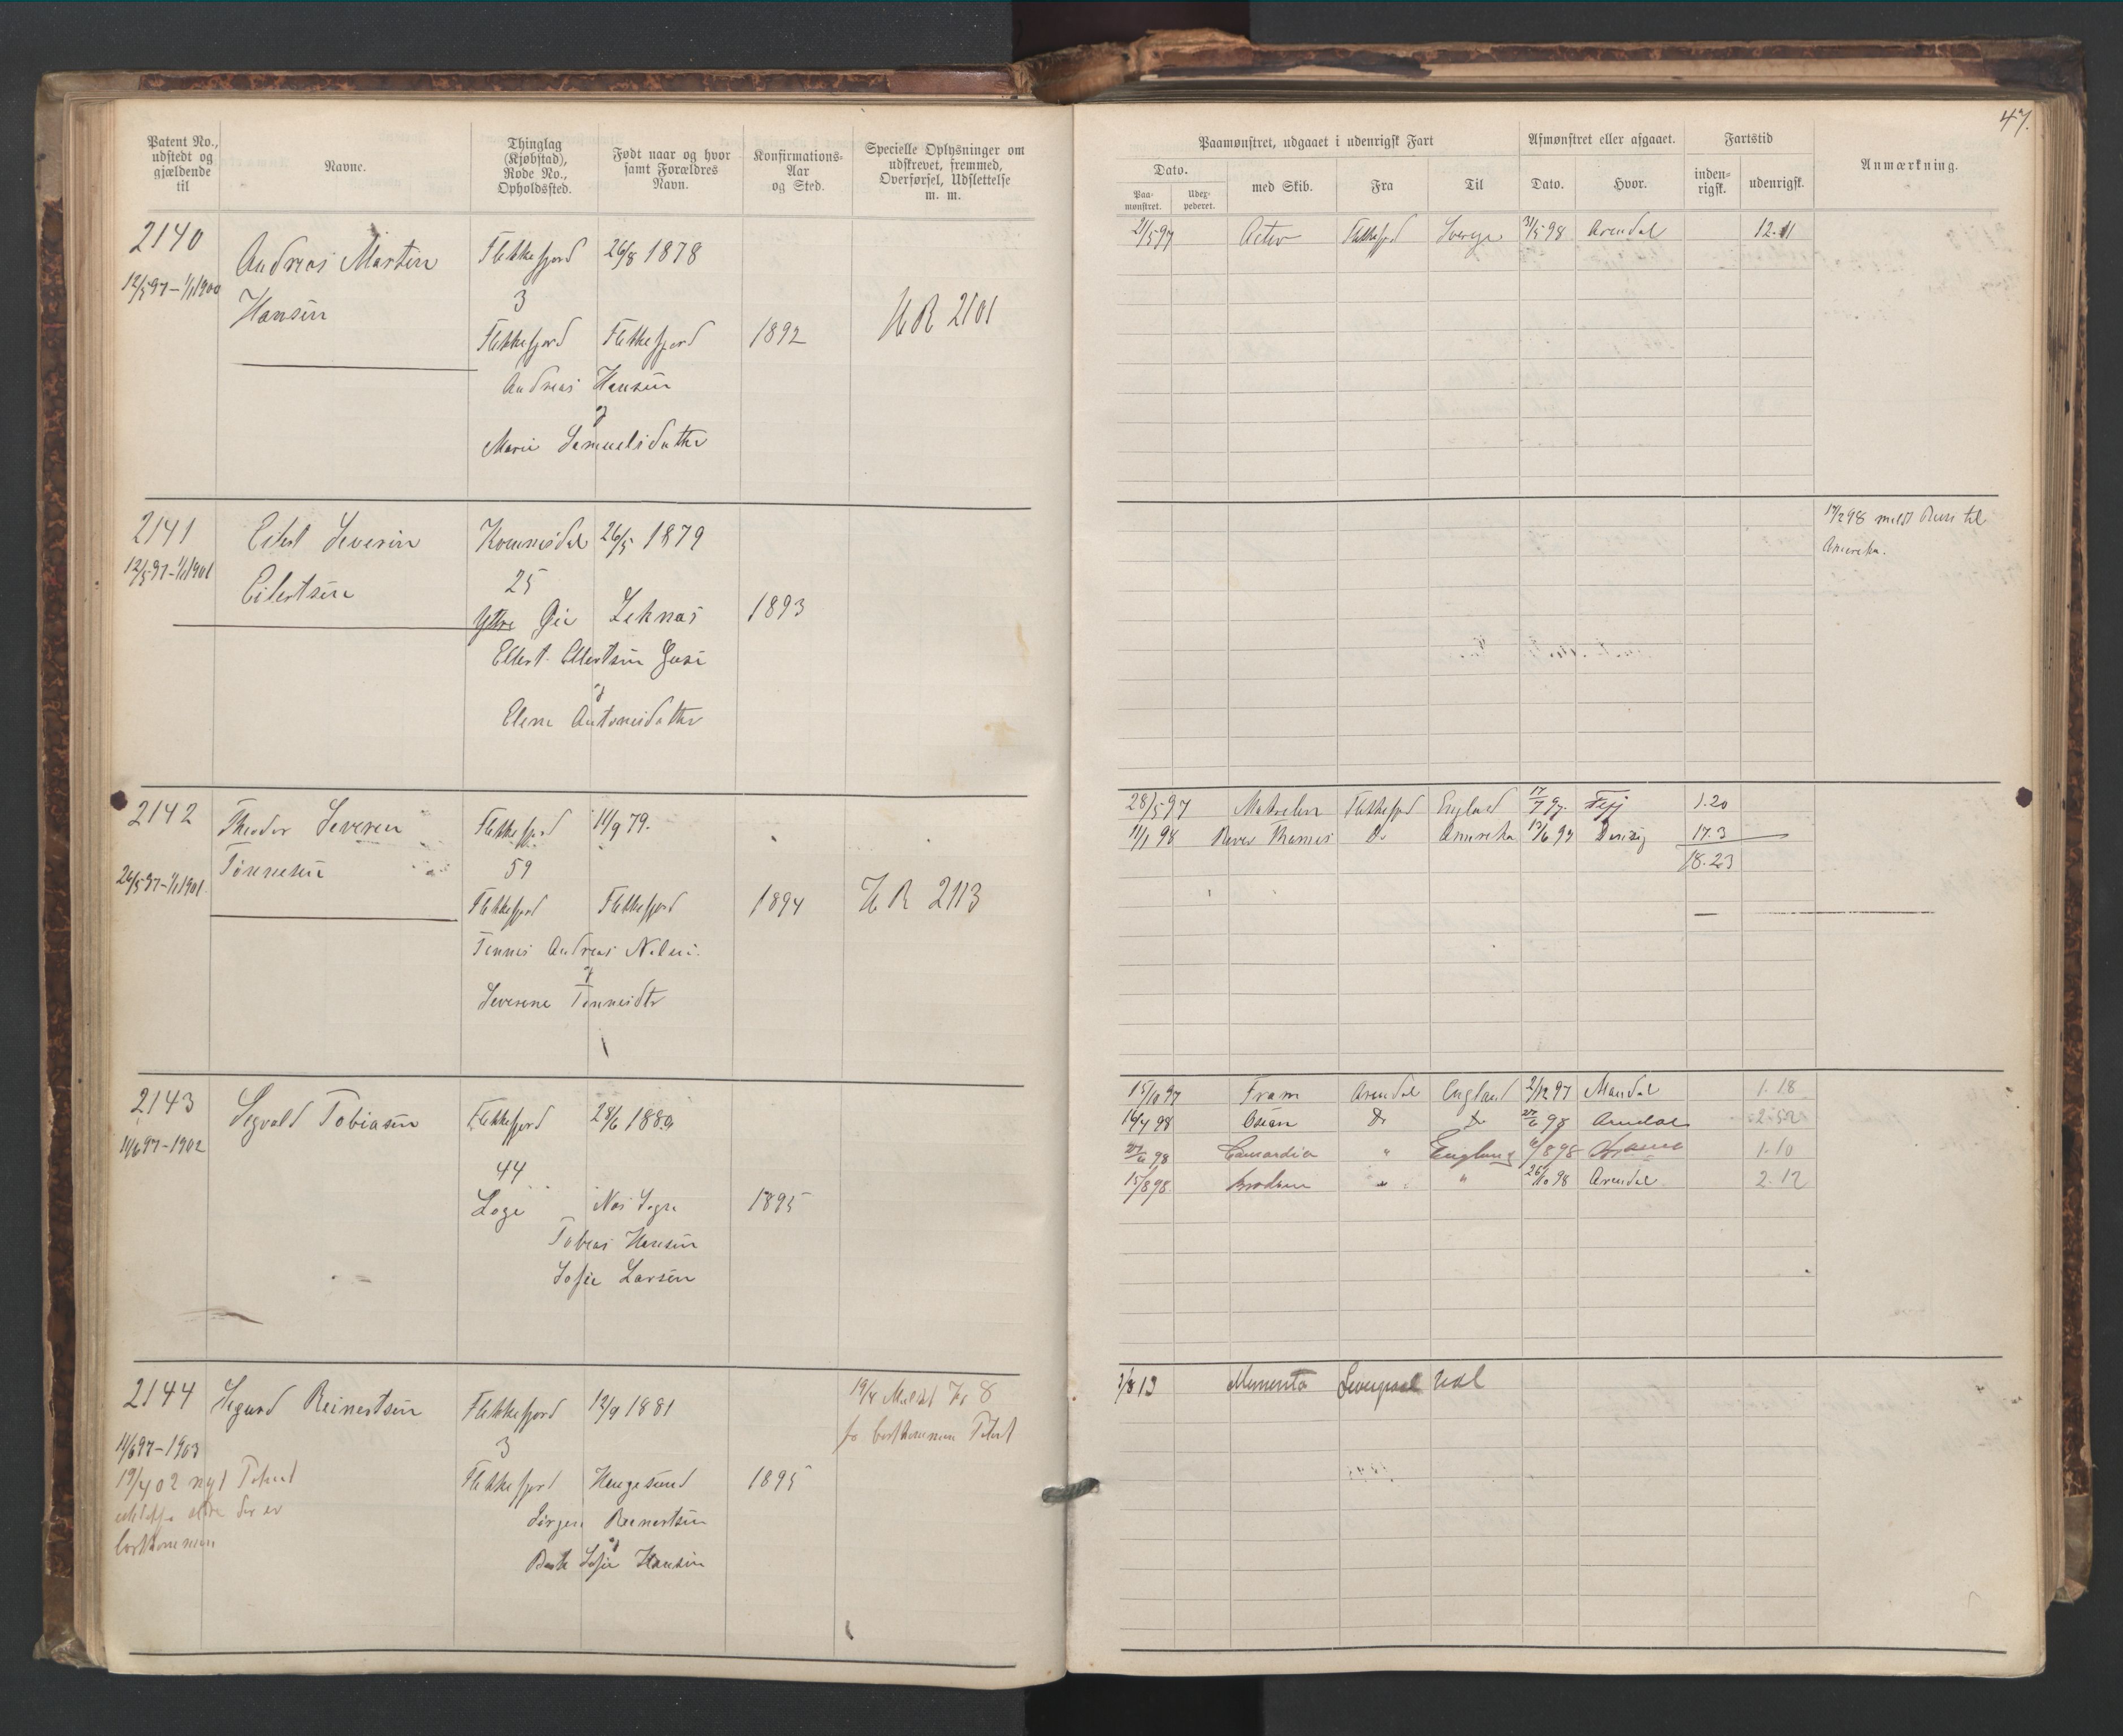 47.
Patent No., udstedt og gjældende til
Navne.
Thinglag (Kjøbstad), Rode No., Opholdssted.
Født naar og hvor samt Forældres Navn.
Konfirmations-Aar og Sted.
Specielle Oplysninger om udskrevet, fremmed, Overførsel, Udslettelse m. m.
Paamønstret, udgaaet i udenrigsk Fart
Dato.
Paa-mønstret.
Udex-pederet.
med Skib.
Fra
Til
Afmønstret eller afgaaet.
Dato.
Hvor.
Fartstid
inden-rigsk.
udenrigsk.
Anmærkning.
2140
12/5 97 - 1/1 1900
Andreas Martin
Hansen
Flekkefjord 26/8 1878
3
Flekkefjord Flekkefjord 1892
H R 2101
Andreas Hansen
og
Marie Samuelsdatter
21/5 97 Activ Flekkefjord Sverge 31/5 98 Arendal 12.11
2141
12/5 97 - 1/1 1901
Eilert Severin
Eilertsen
Kvinnesdal 26/5 1879
25
Yttre Øie Leknas 1893
Eilert Eilertsen
og
Elene Antonisdatter
17/2 98 meldt Reise til
Amerika.
2142
26/5 97 - 1/1 1901
Theodor Severin
Tønnesen
Flekkefjord 11/9 79.
59
Flekkefjord Flekkefjord 1894
H R 2113
Tønnes Andreas Nilsen
og
Severene Tønnesdtr
28/5 97 Flekkefjord England 17/7 97 1.20
11/1 98 River Thames Do Amerika 17.3
18.23
2143
11/6 97 - 1902
Sigvald Tobiasen
Flekkefjord 28/6 1880
44
Loge 1895
Tobias Hansen
Sofie Larsen
15/10 97 Fram Arendal England 2/12 97 Mandal 1.18
16/4 98 Osean Do Do 27/6 98 Arendal
27/6 98 " England 6/8 98 1.10
15/8 98 " 26/10 98 Arendal 2.12
2144
11/6 97 - 1903
19/4 02 nyt Patent
bortkommen
Sigurd Reinertsen
Flekkefjord 12/9 1881
3
Flekkefjord Haugesund 1895
Jørgen Reinertsen
og
Sofie Hansen
19/4 Kr 8
for bortkommen Patent
3/8 13 Memento Liverpool